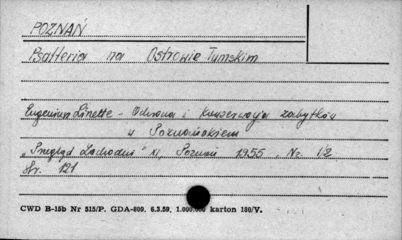 POZNAŃ
Psałteria na Ostrowie Tumskim
Eugeniusz Linette - Ochrona i konserwacja zabytków
w Poznańskiem
„Przegląd Zachodni" XI, Poznań 1955, Nr. 1/2
str. 121
CWD B-15b Nr 515/P. GDA-809. 6.3.59. 1.000.000 karton 180/V.